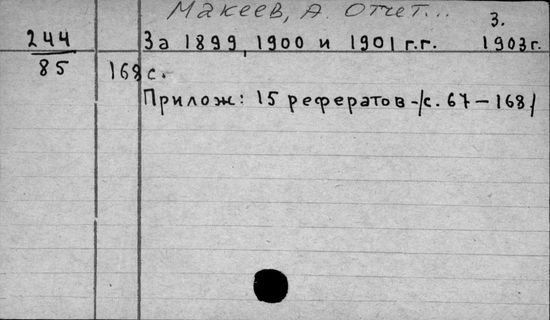 Макеев, А. Отчет...
3.
244 За 1899, 1900 и 1901 г.г. 1903г.
85 168 с.
Прилож: 15 рефератов -/с. 67 – 168/